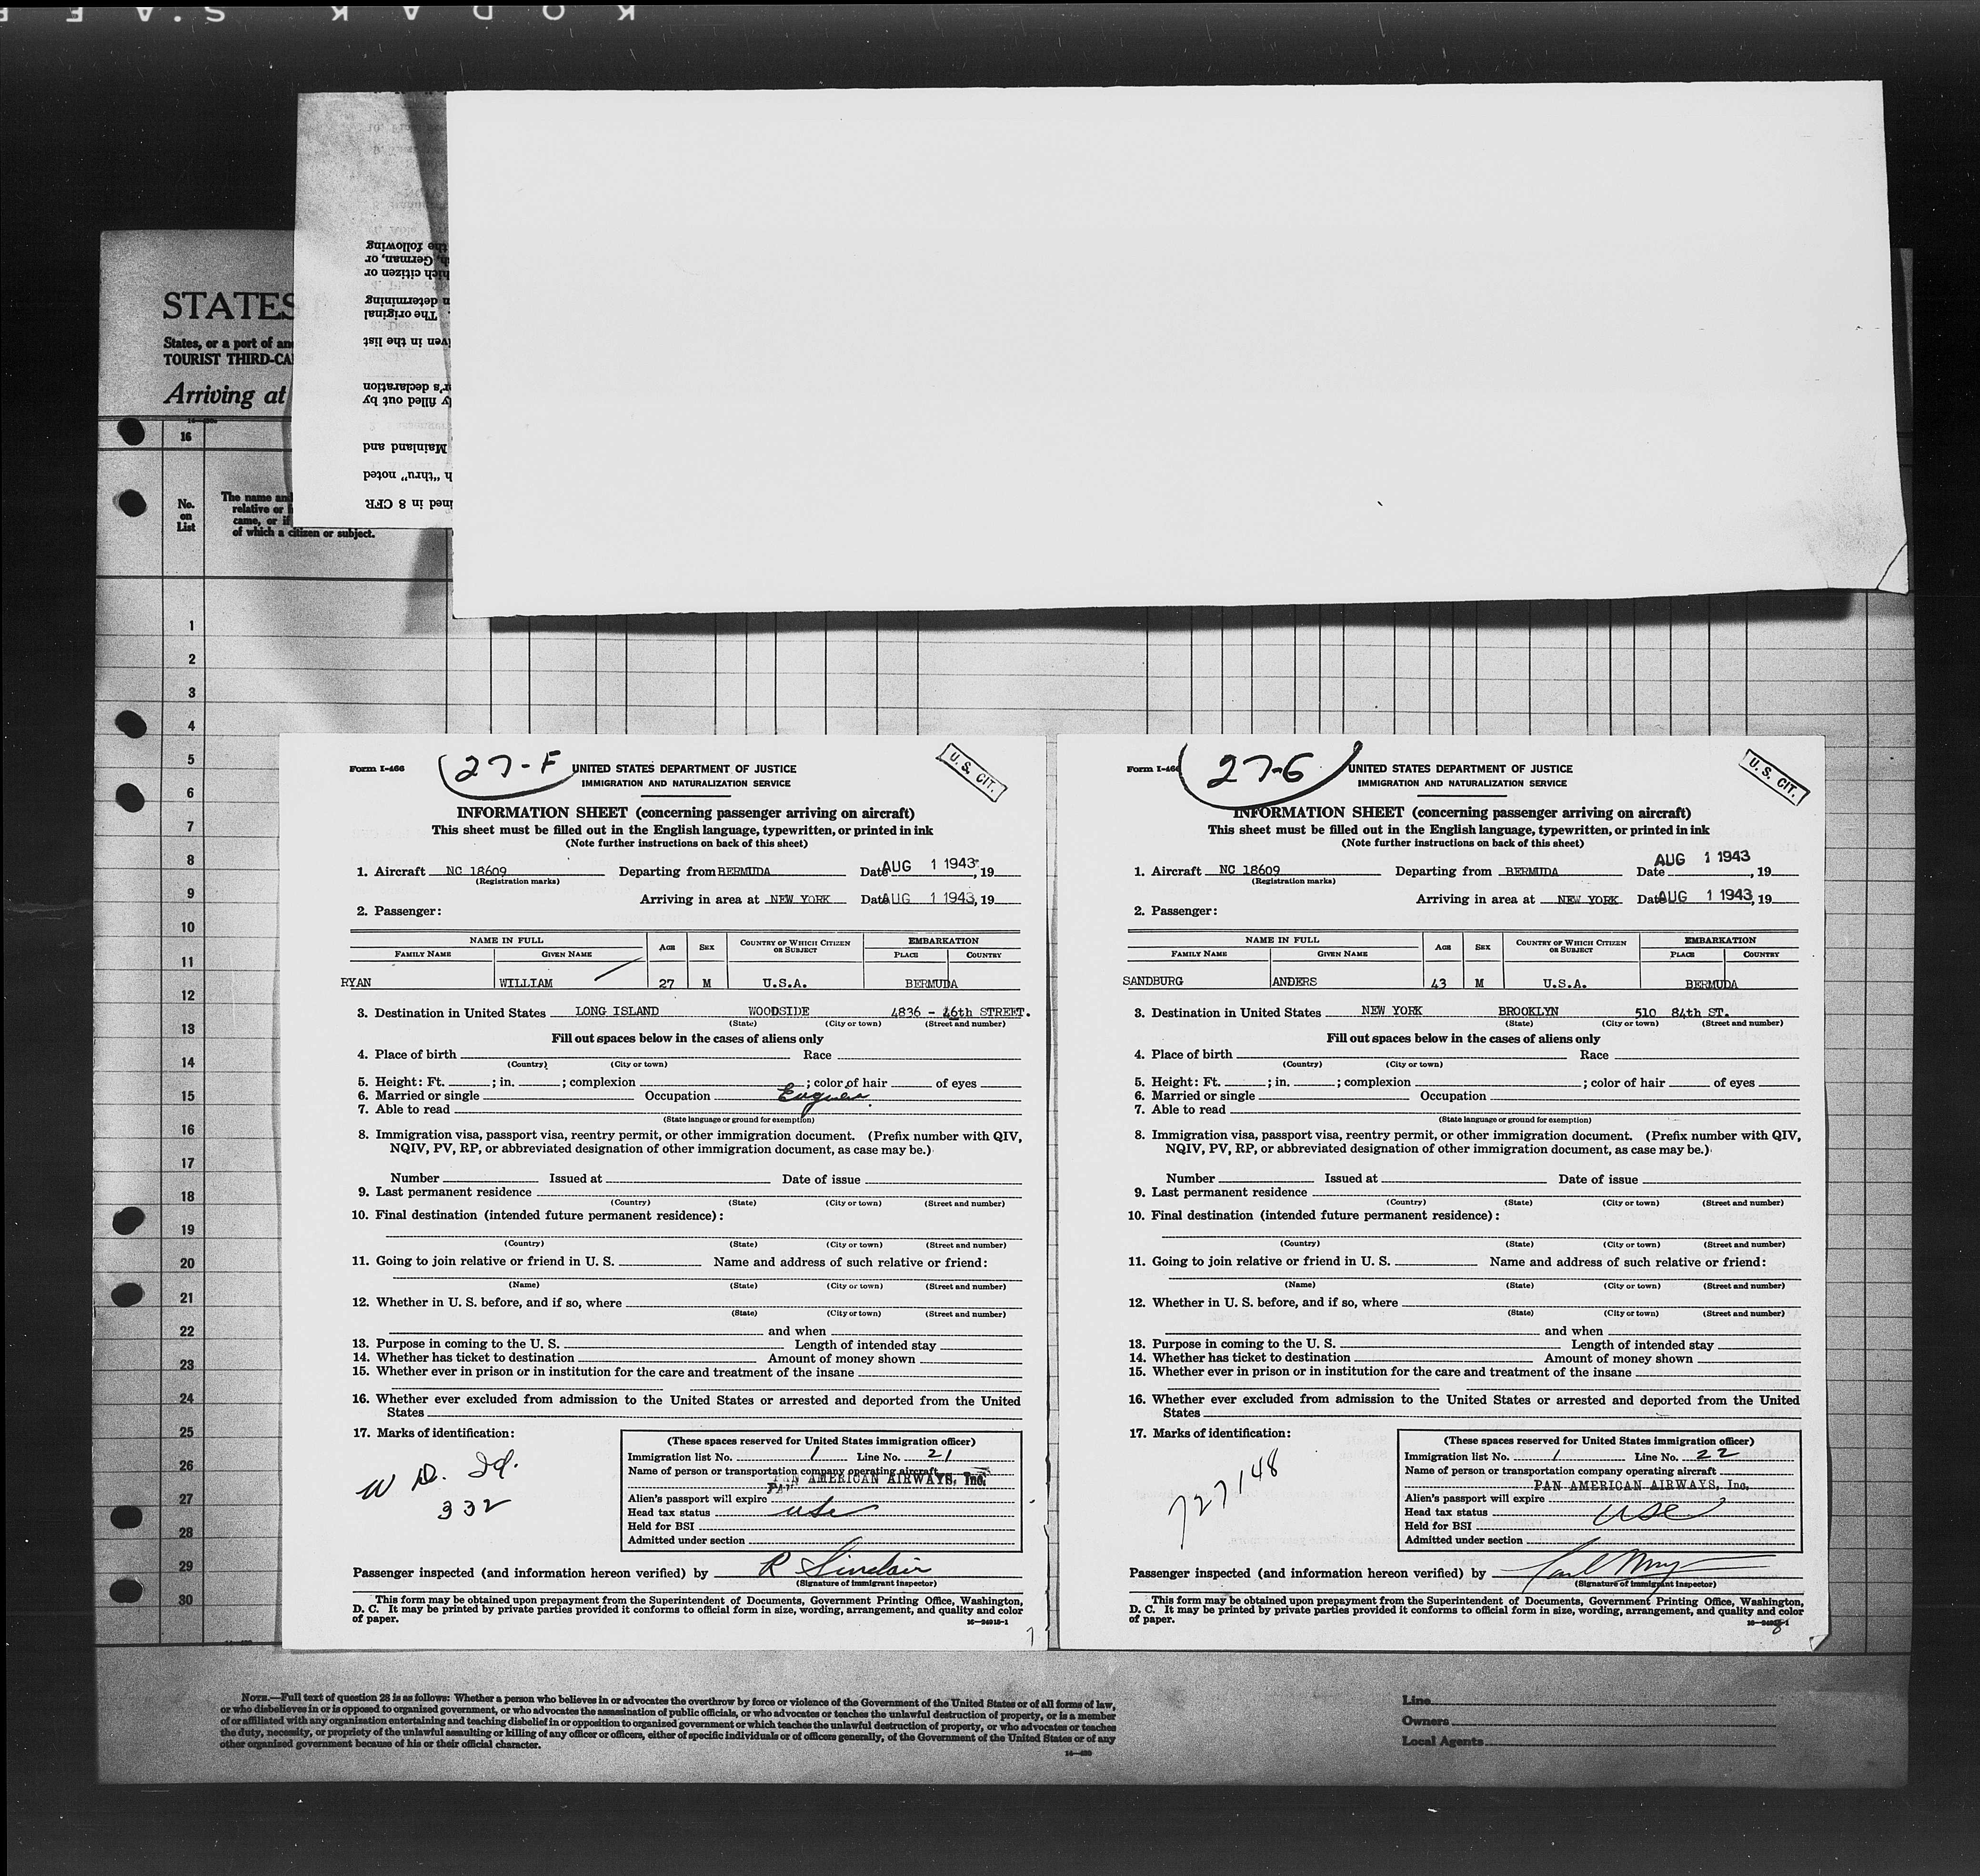 KODAK S.A.F.E
STATES
States, or a port of an
TOURIST THIRD-CA
Arriving at
16
No.
on
List
The name and
relative or
came, or if
of which a citizen or subject.
the following
h, German, or
hich citizen or
n determining
. The original
iven in the list
r's declaration
y filled out by
Mainland and
h "thru" noted
ined in 8 CFR
1
2
3
4
5
6
7
8
9
10
11
12
13
14
15
16
17
18
19
20
21
22
23
24
25
26
27
28
29
30
Form I-466
27-F
UNITED STATES DEPARTMENT OF JUSTICE
IMMIGRATION AND NATURALIZATION SERVICE
U.S. CIT.
INFORMATION SHEET (concerning passenger arriving on aircraft)
This sheet must be filled out in the English language, typewritten, or printed in ink
(Note further instructions on back of this sheet)
1. Aircraft NC 18609 Departing from BERMUDA Date AUG 1 1943, 19
(Registration marks)
Arriving in area at NEW YORK Date AUG 1 1943, 19
2. Passenger:
NAME IN FULL AGE SEX COUNTRY OF WHICH CITIZEN OR SUBJECT EMBARKATION
FAMILY NAME GIVEN NAME PLACE COUNTRY
RYAN WILLIAM 27 M U.S.A. BERMUDA
3. Destination in United States LONG ISLAND WOODSIDE 4836 - 46th STREET.
(State) (City or town) (Street and number)
Fill out spaces below in the cases of aliens only
4. Place of birth Race
(Country) (City or town)
5. Height: Ft. ; in. ; complexion ; color of hair of eyes
6. Married or single Occupation Engineer.
7. Able to read
(State language or ground for exemption)
8. Immigration visa, passport visa, reentry permit, or other immigration document. (Prefix number with QIV,
NQIV, PV, RP, or abbreviated designation of other immigration document, as case may be.)
Number Issued at Date of issue
9. Last permanent residence
(Country) (State) (City or town) (Street and number)
10. Final destination (intended future permanent residence):
(Country) (State) (City or town) (Street and number)
11. Going to join relative or friend in U. S. Name and address of such relative or friend:
(Name) (State) (City or town) (Street and number)
12. Whether in U. S. before, and if so, where
(State) (City or town) (Street and number)
and when
13. Purpose in coming to the U. S. Length of intended stay
14. Whether has ticket to destination Amount of money shown
15. Whether ever in prison or in institution for the care and treatment of the insane
16. Whether ever excluded from admission to the United States or arrested and deported from the United
States
17. Marks of identification:
W D. Id.
332
(These spaces reserved for United States immigration officer)
Immigration list No. 1 Line No. 21
Name of person or transportation company operating aircraft
PAN AMERICAN AIRWAYS, Inc.
Alien's passport will expire
Head tax status USC
Held for BSI
Admitted under section
Passenger inspected (and information hereon verified) by R Sinclair
(Signature of immigrant inspector)
This form may be obtained upon prepayment from the Superintendent of Documents, Government Printing Office, Washington,
D. C. It may be printed by private parties provided it conforms to official form in size, wording, arrangement, and quality and color
of paper.
7
Form I-466
27-G
UNITED STATES DEPARTMENT OF JUSTICE
IMMIGRATION AND NATURALIZATION SERVICE
U.S. CIT.
INFORMATION SHEET (concerning passenger arriving on aircraft)
This sheet must be filled out in the English language, typewritten, or printed in ink
(Note further instructions on back of this sheet)
1. Aircraft NC 18609 Departing from BERMUDA Date AUG 1 1943, 19
(Registration marks)
Arriving in area at NEW YORK Date AUG 1 1943, 19
2. Passenger:
NAME IN FULL AGE SEX COUNTRY OF WHICH CITIZEN OR SUBJECT EMBARKATION
FAMILY NAME GIVEN NAME PLACE COUNTRY
SANDBURG ANDERS 43 M U.S.A. BERMUDA
3. Destination in United States NEW YORK BROOKLYN 510 84th ST.
(State) (City or town) (Street and number)
Fill out spaces below in the cases of aliens only
4. Place of birth Race
(Country) (City or town)
5. Height: Ft. ; in. ; complexion ; color of hair of eyes
6. Married or single Occupation
7. Able to read
(State language or ground for exemption)
8. Immigration visa, passport visa, reentry permit, or other immigration document. (Prefix number with QIV,
NQIV, PV, RP, or abbreviated designation of other immigration document, as case may be.)
Number Issued at Date of issue
9. Last permanent residence
(Country) (State) (City or town) (Street and number)
10. Final destination (intended future permanent residence):
(Country) (State) (City or town) (Street and number)
11. Going to join relative or friend in U. S. Name and address of such relative or friend:
(Name) (State) (City or town) (Street and number)
12. Whether in U. S. before, and if so, where
(State) (City or town) (Street and number)
and when
13. Purpose in coming to the U. S. Length of intended stay
14. Whether has ticket to destination Amount of money shown
15. Whether ever in prison or in institution for the care and treatment of the insane
16. Whether ever excluded from admission to the United States or arrested and deported from the United
States
17. Marks of identification:
727148
(These spaces reserved for United States immigration officer)
Immigration list No. 1 Line No. 22
Name of person or transportation company operating aircraft
PAN AMERICAN AIRWAYS, Inc.
Alien's passport will expire
Head tax status USC
Held for BSI
Admitted under section
Passenger inspected (and information hereon verified) by
(Signature of immigrant inspector)
This form may be obtained upon prepayment from the Superintendent of Documents, Government Printing Office, Washington,
D. C. It may be printed by private parties provided it conforms to official form in size, wording, arrangement, and quality and color
of paper.
8
NOTE.—Full text of question 28 is as follows: Whether a person who believes in or advocates the overthrow by force or violence of the Government of the United States or of all forms of law,
or who disbelieves in or is opposed to organized government, or who advocates the assassination of public officials, or who advocates or teaches the unlawful destruction of property, or is a member
of or affiliated with any organization entertaining and teaching disbelief in or opposition to organized government or which teaches the unlawful destruction of property, or who advocates or teaches
the duty, necessity, or propriety of the unlawful assaulting or killing of any officer or officers, either of specific individuals or of officers generally, of the Government of the United States or of any
other organized government because of his or their official character.
Line
Owners
Local Agents